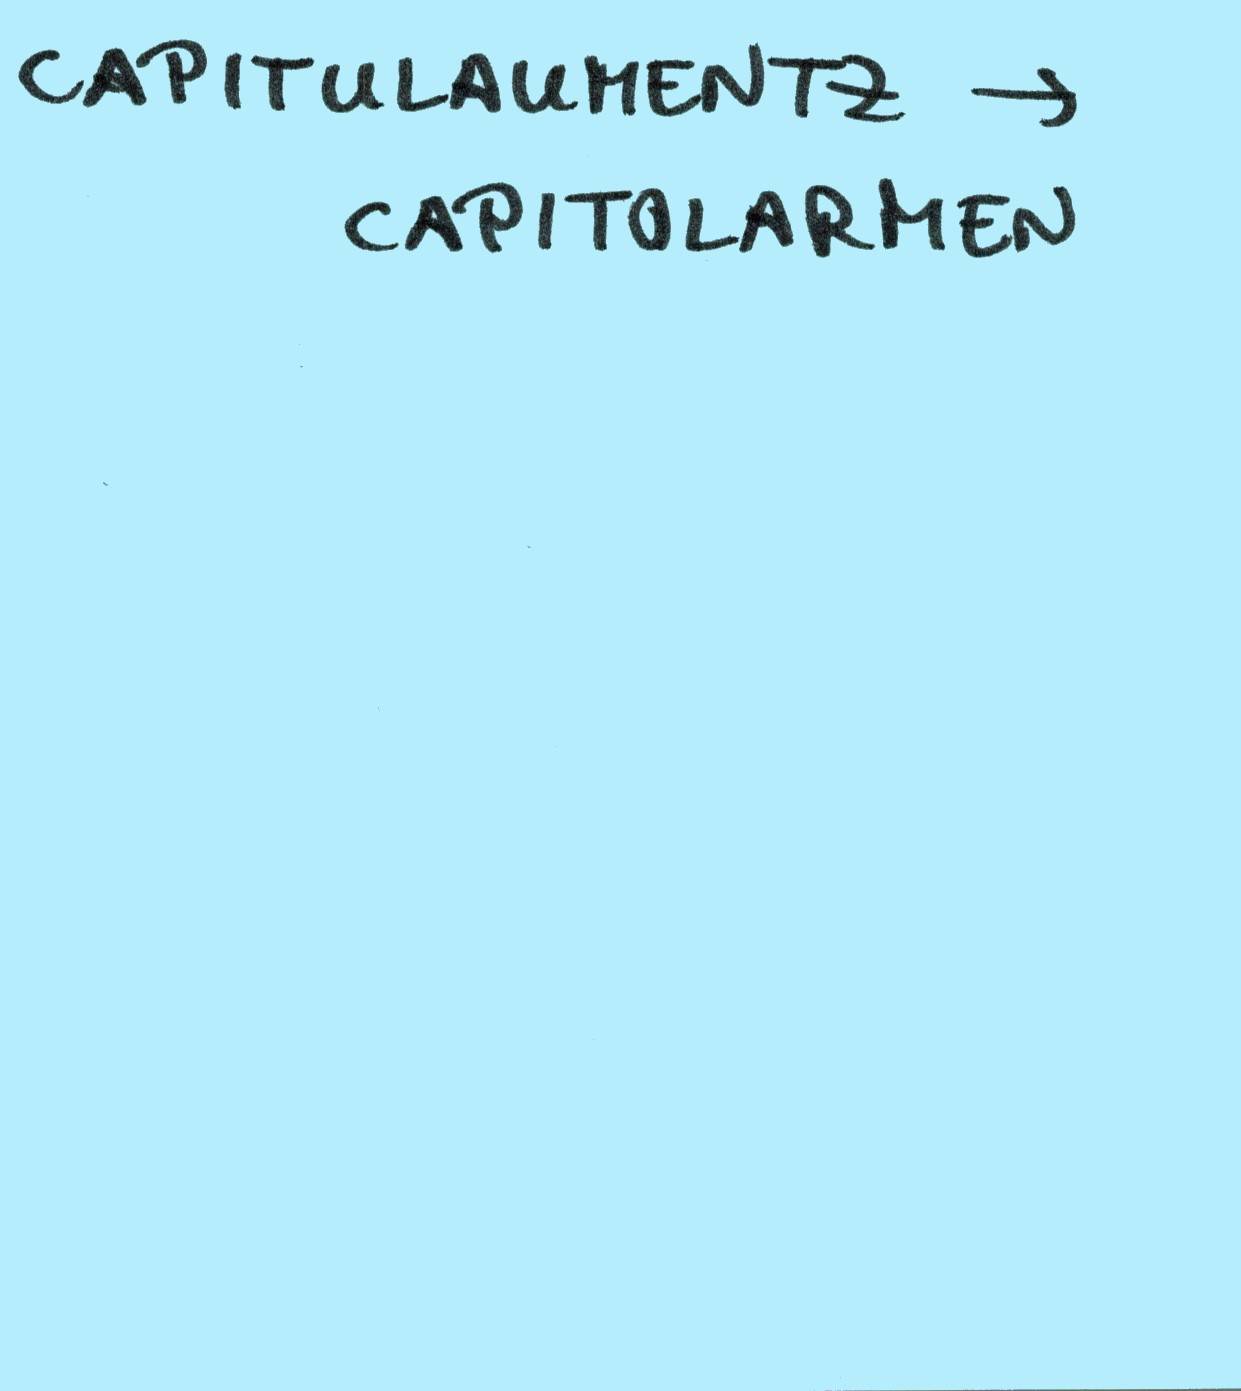 CAPITULAUMENTZ →
CAPITOLARMEN